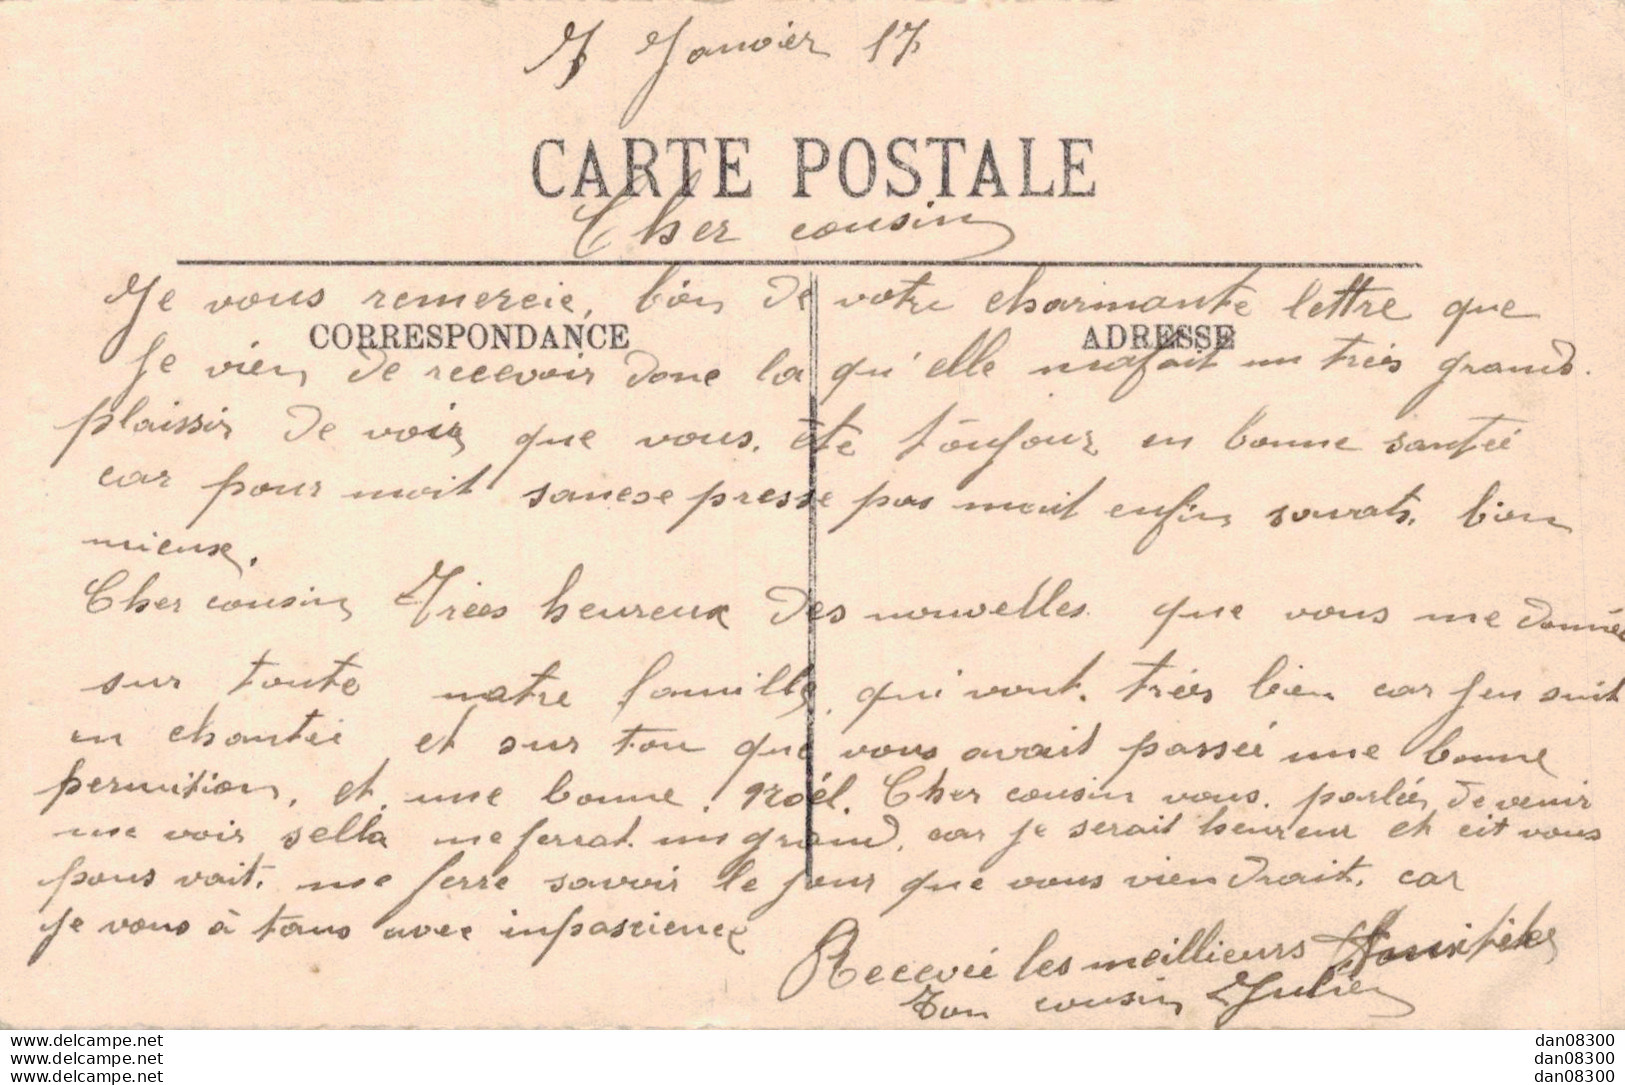 7 Janvier 17
CARTE POSTALE
Cher cousin
Je vous remercie, bien de votre charmante lettre que
CORRESPONDANCE
ADRESSE
Je vien de recevoir donc la qu'elle mafait un trés grand.
plaissir de voir que vous. éte toujour en bonne santéé
car pour moit sanese presse pas mait enfin sourats. bien
mieux.
Cher cousin Trées heureux des nouvelles que vous me donnée
sur toute notre famille, qui vont. trés bien car jen suit
en chantéé et sur tou que vous avait passéé une bonne
permition, et. une bonne. Nöél. Cher cousin vous. parléés de venir
me voir sella me ferrat. un graind, car je serait heureux et cit vous
pous vait. me ferre savoir le jour que vous viendrait. car
je vous à tans avec inpascience
Recevéé les meillieurs
Ton cousin Julien
www.delcampe.net
www.delcampe.net
www.delcampe.net
dan08300
dan08300
dan08300